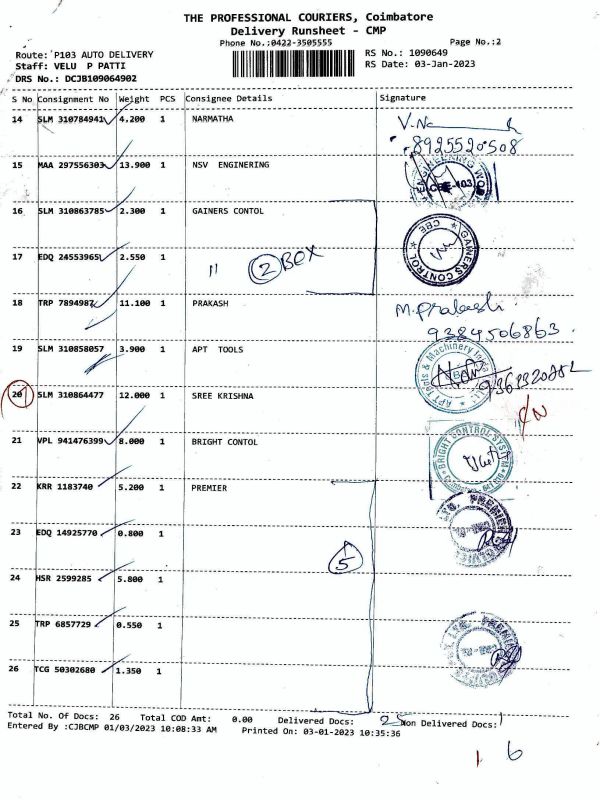 THE PROFESSIONAL COURIERS, Coimbatore
Delivery Runsheet - CMP
Phone No.:0422-3505555 Page No.:2
Route: P103 AUTO DELIVERY RS No.: 1090649
Staff: VELU P PATTI RS Date: 03-Jan-2023
DRS No.: DCJB109064902
S No Consignment No Weight PCS Consignee Details Signature
14 SLM 310784941 4.200 1 NARMATHA
8925520508
15 MAA 297556303 13.900 1 NSV ENGINERING
ENGINEERING WO
CBE-103
16 SLM 310863785 2.300 1 GAINERS CONTOL
GAINERS CONTROL CBE
17 EDQ 24553965 2.550 1 " 2 BOX
18 TRP 7894987 11.100 1 PRAKASH M.Prakash
9384506863
19 SLM 310858057 3.900 1 APT TOOLS
APT Tools & Machinery
20 SLM 310864477 12.000 1 SREE KRISHNA
21 VPL 941476399 8.000 1 BRIGHT CONTOL
BRIGHT CONTROL SYSTEM
22 KRR 1183740 5.200 1 PREMIER
PREMIER
23 EDQ 14925770 0.800 1
5
24 HSR 2599285 5.800 1
25 TRP 6857729 0.550 1
PREMIER
26 TCG 50302680 1.350 1
Total No. Of Docs: 26 Total COD Amt: 0.00 Delivered Docs: 25 Non Delivered Docs: 1
Entered By :CJBCMP 01/03/2023 10:08:33 AM Printed On: 03-01-2023 10:35:36
1 6